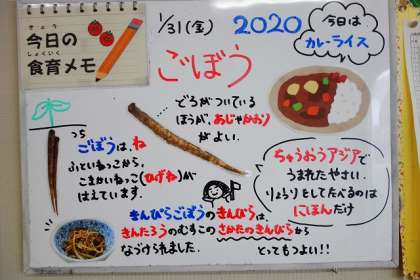 きょう
今日の
しょくいく
食育メモ
1/31(金)
2020
今日は
カレーライス
ごぼう
どろがついている
ほうが、あじやかおり
がよい。
つち
ごぼうは、ね
ふといねっこから、
こまかいねっこ(ひげね)が
はえています。
ちゅうおうアジアで
うまれたやさい。
りょうりとしてたべるのは
にほんだけ
きんぴらごぼうのきんぴらは、
きんたろうのむすこのさかたのきんぴらから
なづけられました。
とってもつよい!!